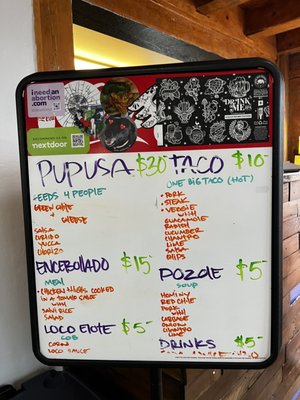 i need an
abortion
.com
nextdoor
DRINK
PUPUSA $20
FEEDS 4 PEOPLE
GREEN CHILE
+
CHEESE
SALSA
CURTIDO
YUCCA
CHORIZO
ENCEBOLLADO $15
MEAL
• CHICKEN THIGHS COOKED
IN A TOMATO SAUCE
WITH
RICE
SALAD
LOCO ELOTE $5
COB
CORN
LOCO SAUCE
TACO $10
ONE BIG TACO (HOT)
• PORK
• STEAK
• VEGGIE
WITH
GUACAMOLE
RADISH
CUCUMBER
CILANTRO
LIME
SALSA
POZOLE $5
SOUP
HOMINY
RED CHILE
PORK
WITH
CABBAGE
ONION
CILANTRO
LIME
DRINKS $5